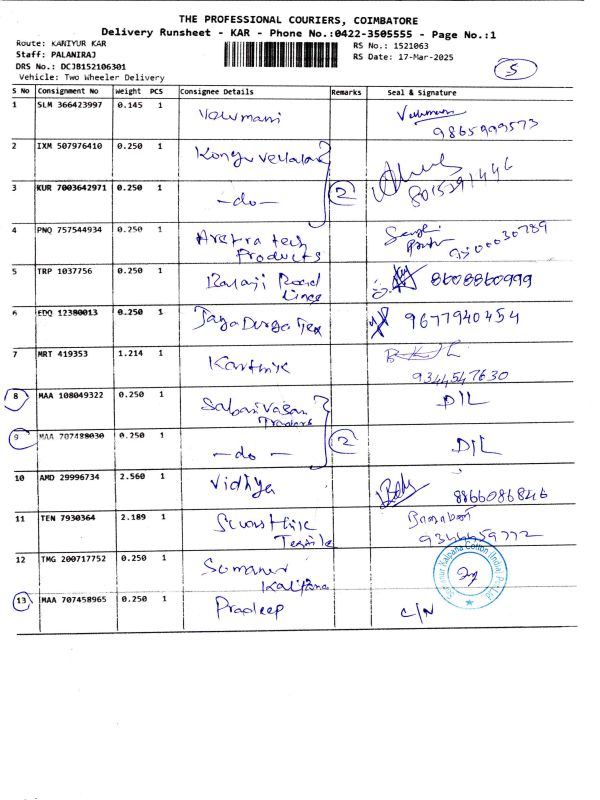 THE PROFESSIONAL COURIERS, COIMBATORE
Delivery Runsheet - KAR - Phone No.:0422-3505555 - Page No.:1
Route: KANIYUR KAR
RS No.: 1521063
Staff: PALANIRAJ
RS Date: 17-Mar-2025
DRS No.: DCJB152106301
5
Vehicle: Two Wheeler Delivery
S No Consignment No Weight PCS Consignee Details Remarks Seal & Signature
1 SLM 366423997 0.145 1 Velumani
9865999573
2 IXM 507976410 0.250 1 Kongu Vellalar
8015291446
3 KUR 7003642971 0.250 1 -do- 2
4 PNQ 757544934 0.250 1 Aretra tech
Products
9500030789
5 TRP 1037756 0.250 1 Balaji Road
Lines
8608860999
6 EDQ 12380013 0.250 1 Jaya Durga Tex 9677940454
7 MRT 419353 1.214 1 Karthik
9344547630
8 MAA 108049322 0.250 1 Sabari Vasan
Traders
D/L
9 MAA 707488030 0.250 1 -do- 2 D/L
10 AMD 29996734 2.560 1 Vidhya 8866086846
11 TEN 7930364 2.189 1 Swasthik
Textile
9344459772
12 TMG 200717752 0.250 1 Somanur
Kalpana
Somanur Kalpana Cotton (India) Pvt Ltd
13 MAA 707458965 0.250 1 Pradeep C/N